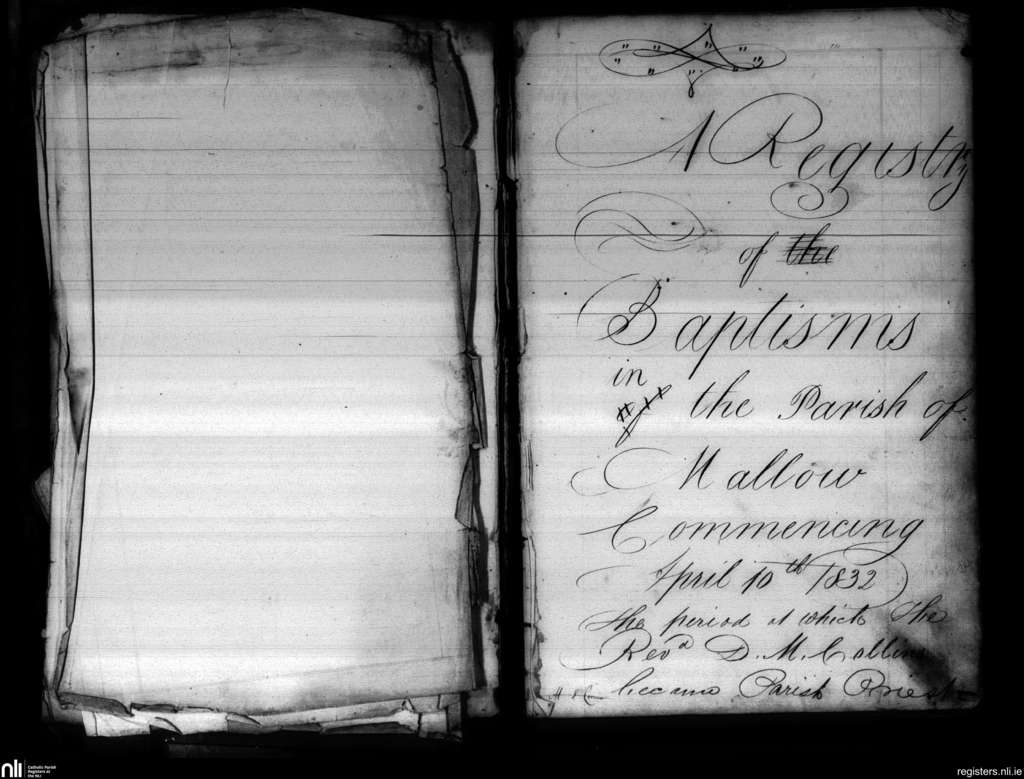 A Registry
of the
Baptisms
in
the Parish of
Mallow
Commencing
April 10th 1832
the period at which the
Revd D. M. Collins
became Parish Priest
nli Catholic Parish
Registers at
the NLI
registers.nli.ie